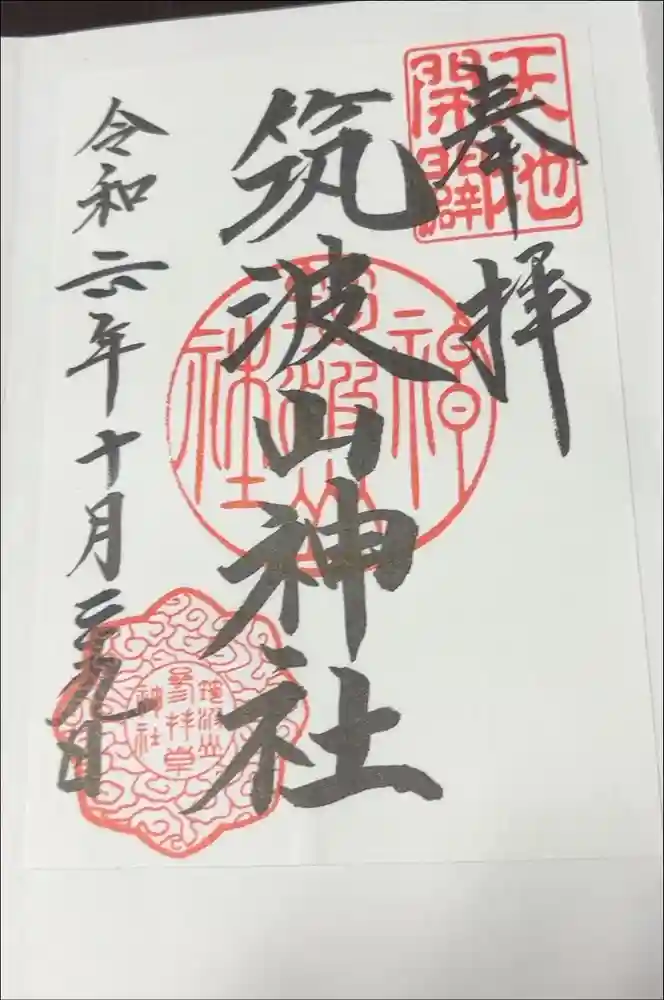 奉拝
天地
開闢
筑波山神社
筑波山
神社
令和六年十月二十九日
筑波山
参拝章
神社